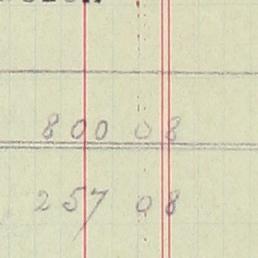 800 08
257 08